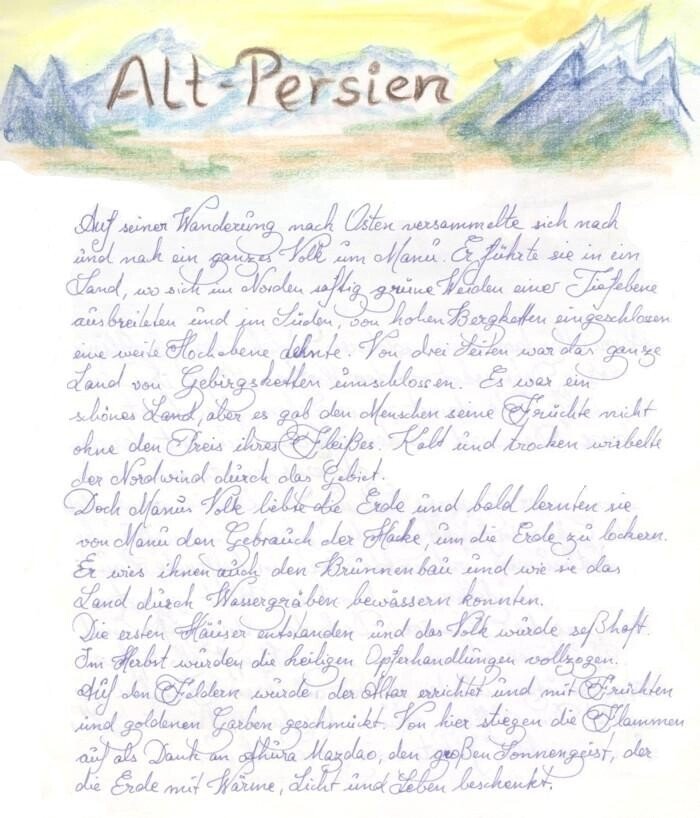 Alt-Persien
Auf seiner Wanderung nach Osten versammelte sich nach
und nach ein ganzes Volk um Manu. Er führte sie in ein
Land, wo sich im Norden saftig grüne Weiden einer Tiefebene
ausbreiteten und im Süden, von hohen Bergketten eingeschlossen
eine weite Hochebene dehnte. Von drei Seiten war das ganze
Land von Gebirgsketten umschlossen. Es war ein
schönes Land, aber es gab den Menschen seine Früchte nicht
ohne den Preis ihres Fleißes. Kalt und trocken wirbelte
der Nordwind durch das Gebiet.
Doch Manus Volk liebte die Erde und bald lernten sie
von Manu den Gebrauch der Hacke, um die Erde zu lockern.
Er wies ihnen auch den Brunnenbau und wie sie das
Land durch Wassergräben bewässern konnten.
Die ersten Häuser entstanden und das Volk wurde seßhaft.
Im Herbst wurden die heiligen Opferhandlungen vollzogen.
Auf den Feldern wurde der Altar errichtet und mit Früchten
und goldenen Garben geschmückt. Von hier stiegen die Flammen
auf als Dank an Ahura Mazdao, den großen Sonnengeist, der
die Erde mit Wärme, Licht und Leben beschenkt.